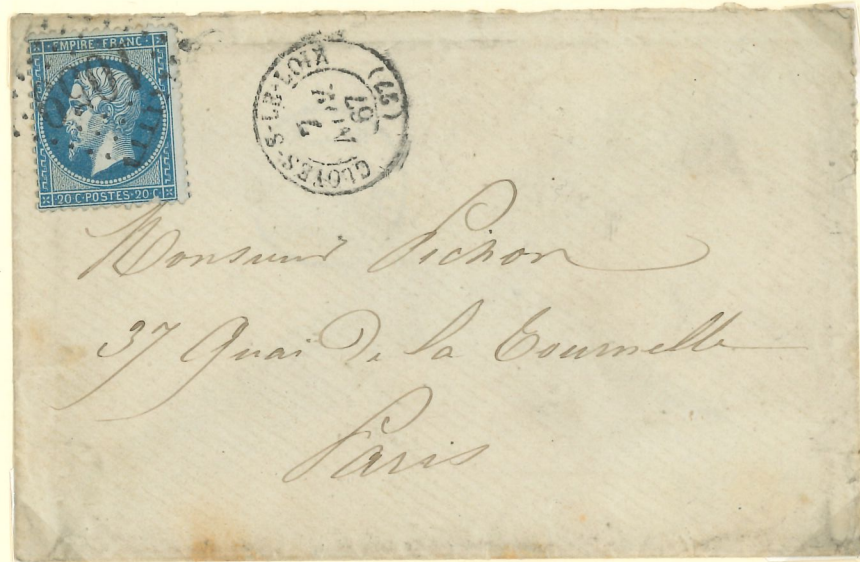 EMPIRE FRANC.
20 C. POSTES. 20 C.
CLOYES-S-LE-LOIR (27)
7
67
Monsieur Pichon
37 Quai De la Tournelle
Paris